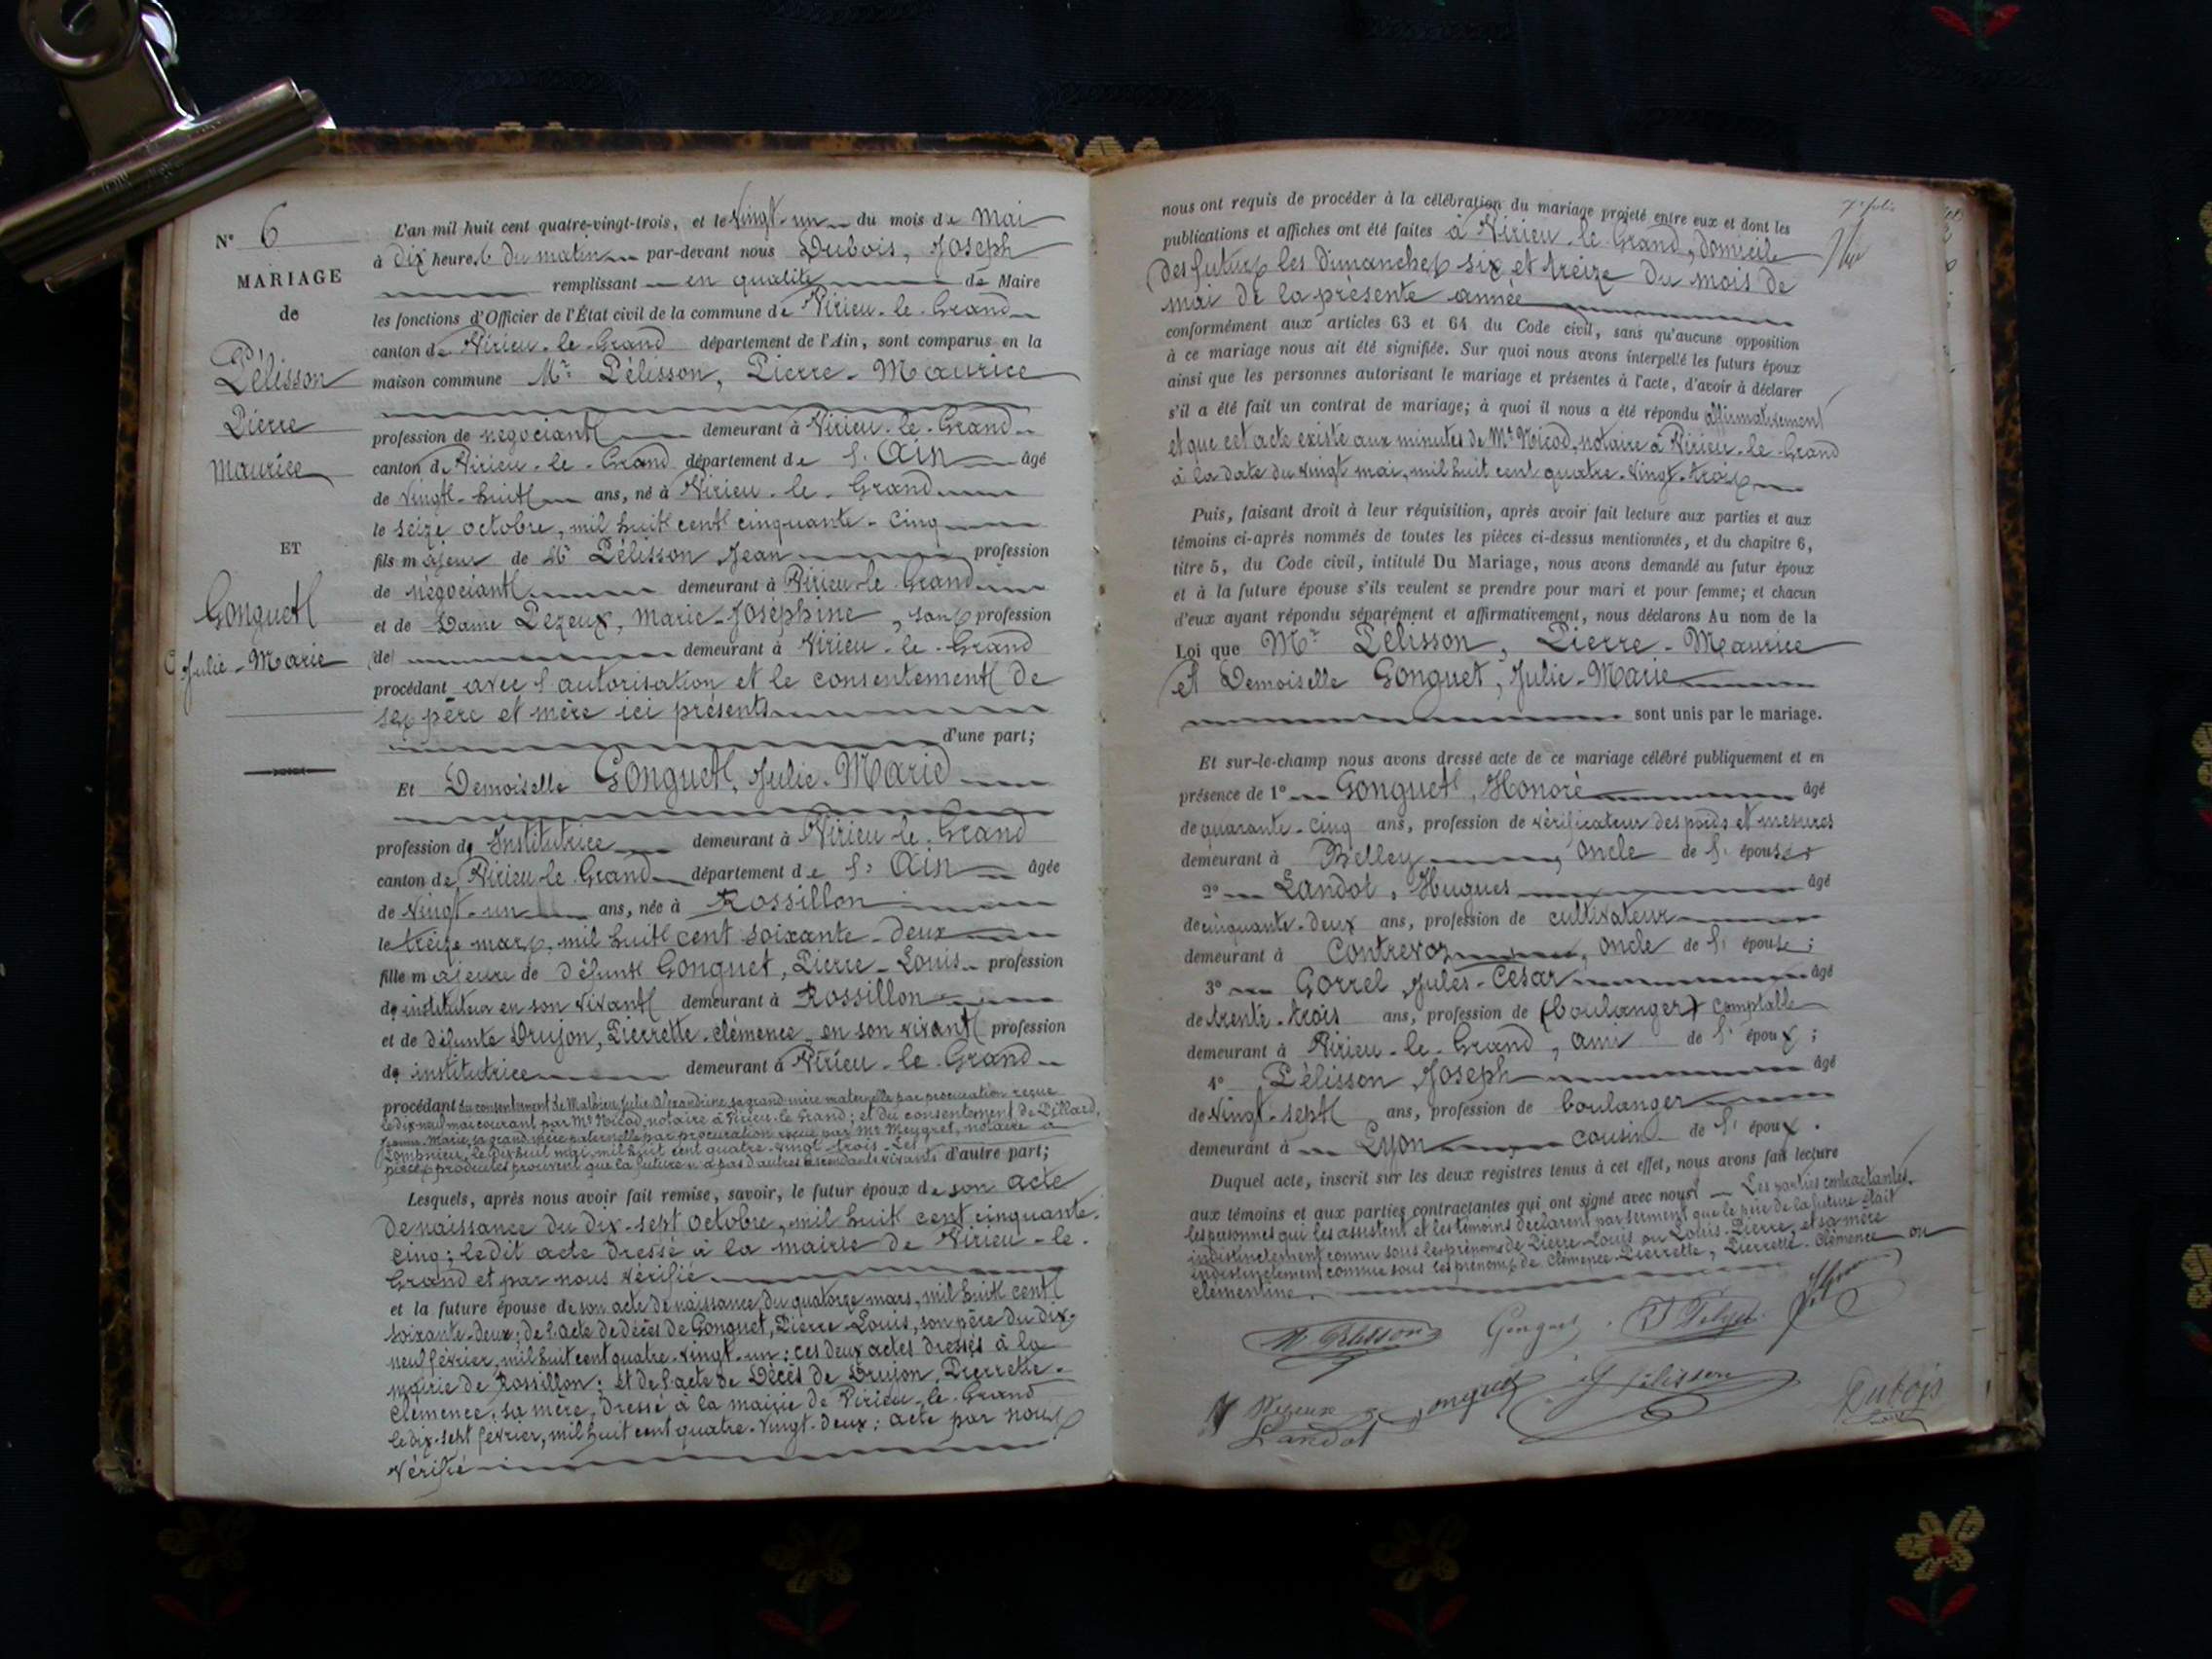 N° 6
MARIAGE
de
Pélisson
Pierre
Maurice
ET
Gonguet
Julie-Marie
L'an mil huit cent quatre-vingt-trois, et le vingt-un du mois de Mai
à dix heures du matin par-devant nous Dubois, Joseph
remplissant en qualité de Maire
les fonctions d'Officier de l'État civil de la commune de Virieu-le-Grand
canton de Virieu-le-Grand département de l'Ain, sont comparus en la
maison commune Mr Pélisson, Pierre-Maurice
profession de négociant demeurant à Virieu-le-Grand
canton de Virieu-le-Grand département de l'Ain âgé
de vingt-huit ans, né à Virieu-le-Grand
le seize octobre, mil huit cent cinquante-cinq
fils majeur de Mr Pélisson Jean profession
de négociant demeurant à Virieu-le-Grand
et de Dame Pezeux, Marie-Joséphine, sans profession
de demeurant à Virieu-le-Grand
procédant avec l'autorisation et le consentement de
ses père et mère ici présents
d'une part;
Et Demoiselle Gonguet, Julie-Marie
profession de Institutrice demeurant à Virieu-le-Grand
canton de Virieu-le-Grand département de l'Ain âgée
de vingt-un ans, née à Rossillon
le treize mars, mil huit cent soixante-deux
fille majeure de défunt Gonguet, Pierre-Louis profession
de instituteur en son vivant demeurant à Rossillon
et de défunte Drujon, Pierrette-clémence, en son vivant profession
de institutrice demeurant à Virieu-le-Grand
procédant du consentement de Mathieu Julie Alexandrine sa grand-mère maternelle par procuration reçue
le dix-neuf mai courant par Mr Nicod, notaire à Virieu-le-Grand; et du consentement de Billard,
Marie, sa grand-mère paternelle par procuration reçue par Mr Meygret, notaire à
le dix-huit mai, mil huit cent quatre-vingt-trois. Les
pièces produites prouvent que la future n'a pas d'autres ascendants vivants d'autre part;
Lesquels, après nous avoir fait remise, savoir, le futur époux de son acte
de naissance du dix-sept octobre, mil huit cent cinquante-
cinq; ledit acte dressé à la mairie de Virieu-le-
Grand et par nous vérifié
et la future épouse de son acte de naissance du quatorze mars, mil huit cent
soixante-deux; de l'acte de décès de Gonguet, Pierre-Louis, son père du dix-
neuf février, mil huit cent quatre-vingt-un; ces deux actes dressés à la
mairie de Rossillon; et de l'acte de Décès de Drujon, Pierrette-
Clémence, sa mère, dressé à la mairie de Virieu-le-Grand
le dix-sept février, mil huit cent quatre-vingt-deux; acte par nous
vérifié
nous ont requis de procéder à la célébration du mariage projeté entre eux et dont les
publications et affiches ont été faites à Virieu-le-Grand, domicile
des futurs les dimanches six et treize du mois de
mai de la présente année
conformément aux articles 63 et 64 du Code civil, sans qu'aucune opposition
à ce mariage nous ait été signifiée. Sur quoi nous avons interpellé les futurs époux
ainsi que les personnes autorisant le mariage et présentes à l'acte, d'avoir à déclarer
s'il a été fait un contrat de mariage; à quoi il nous a été répondu affirmativement
et que cet acte existe aux minutes de Me Nicod, notaire à Virieu-le-Grand
à la date du vingt mai, mil huit cent quatre-vingt-trois
Puis, faisant droit à leur réquisition, après avoir fait lecture aux parties et aux
témoins ci-après nommés de toutes les pièces ci-dessus mentionnées, et du chapitre 6,
titre 5, du Code civil, intitulé Du Mariage, nous avons demandé au futur époux
et à la future épouse s'ils veulent se prendre pour mari et pour femme; et chacun
d'eux ayant répondu séparément et affirmativement, nous déclarons Au nom de la
Loi que Mr Pélisson, Pierre-Maurice
et Demoiselle Gonguet, Julie-Marie
sont unis par le mariage.
Et sur-le-champ nous avons dressé acte de ce mariage célébré publiquement et en
présence de 1° Gonguet, Honoré âgé
de quarante-cinq ans, profession de vérificateur des poids et mesures
demeurant à Belley, oncle de l'épouse
2° Landot, Hugues âgé
de cinquante-deux ans, profession de cultivateur
demeurant à Contrevoz, oncle de l'épouse;
3° Gorrel Jules-César âgé
de trente-trois ans, profession de (boulanger) comptable
demeurant à Virieu-le-Grand, ami de l'époux;
4° Pélisson Joseph âgé
de vingt-sept ans, profession de boulanger
demeurant à Lyon cousin de l'époux.
Duquel acte, inscrit sur les deux registres tenus à cet effet, nous avons fait lecture
aux témoins et aux parties contractantes qui ont signé avec nous. Les parties contractantes,
les personnes qui les assistent et les témoins déclarent par serment que le père de la future était
indistinctement connu sous les prénoms de Pierre-Louis ou Louis-Pierre, et sa mère
indistinctement connue sous les prénoms de Clémence-Pierrette, Pierrette-Clémence ou
Clémentine.
M Pélisson Gonguet
Pezeux J Pélisson
Landot Dubois